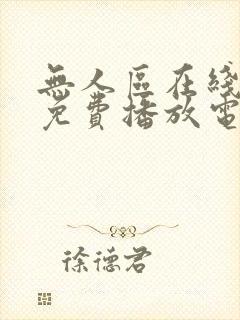 無人區在綫
免費播放電
徐德君